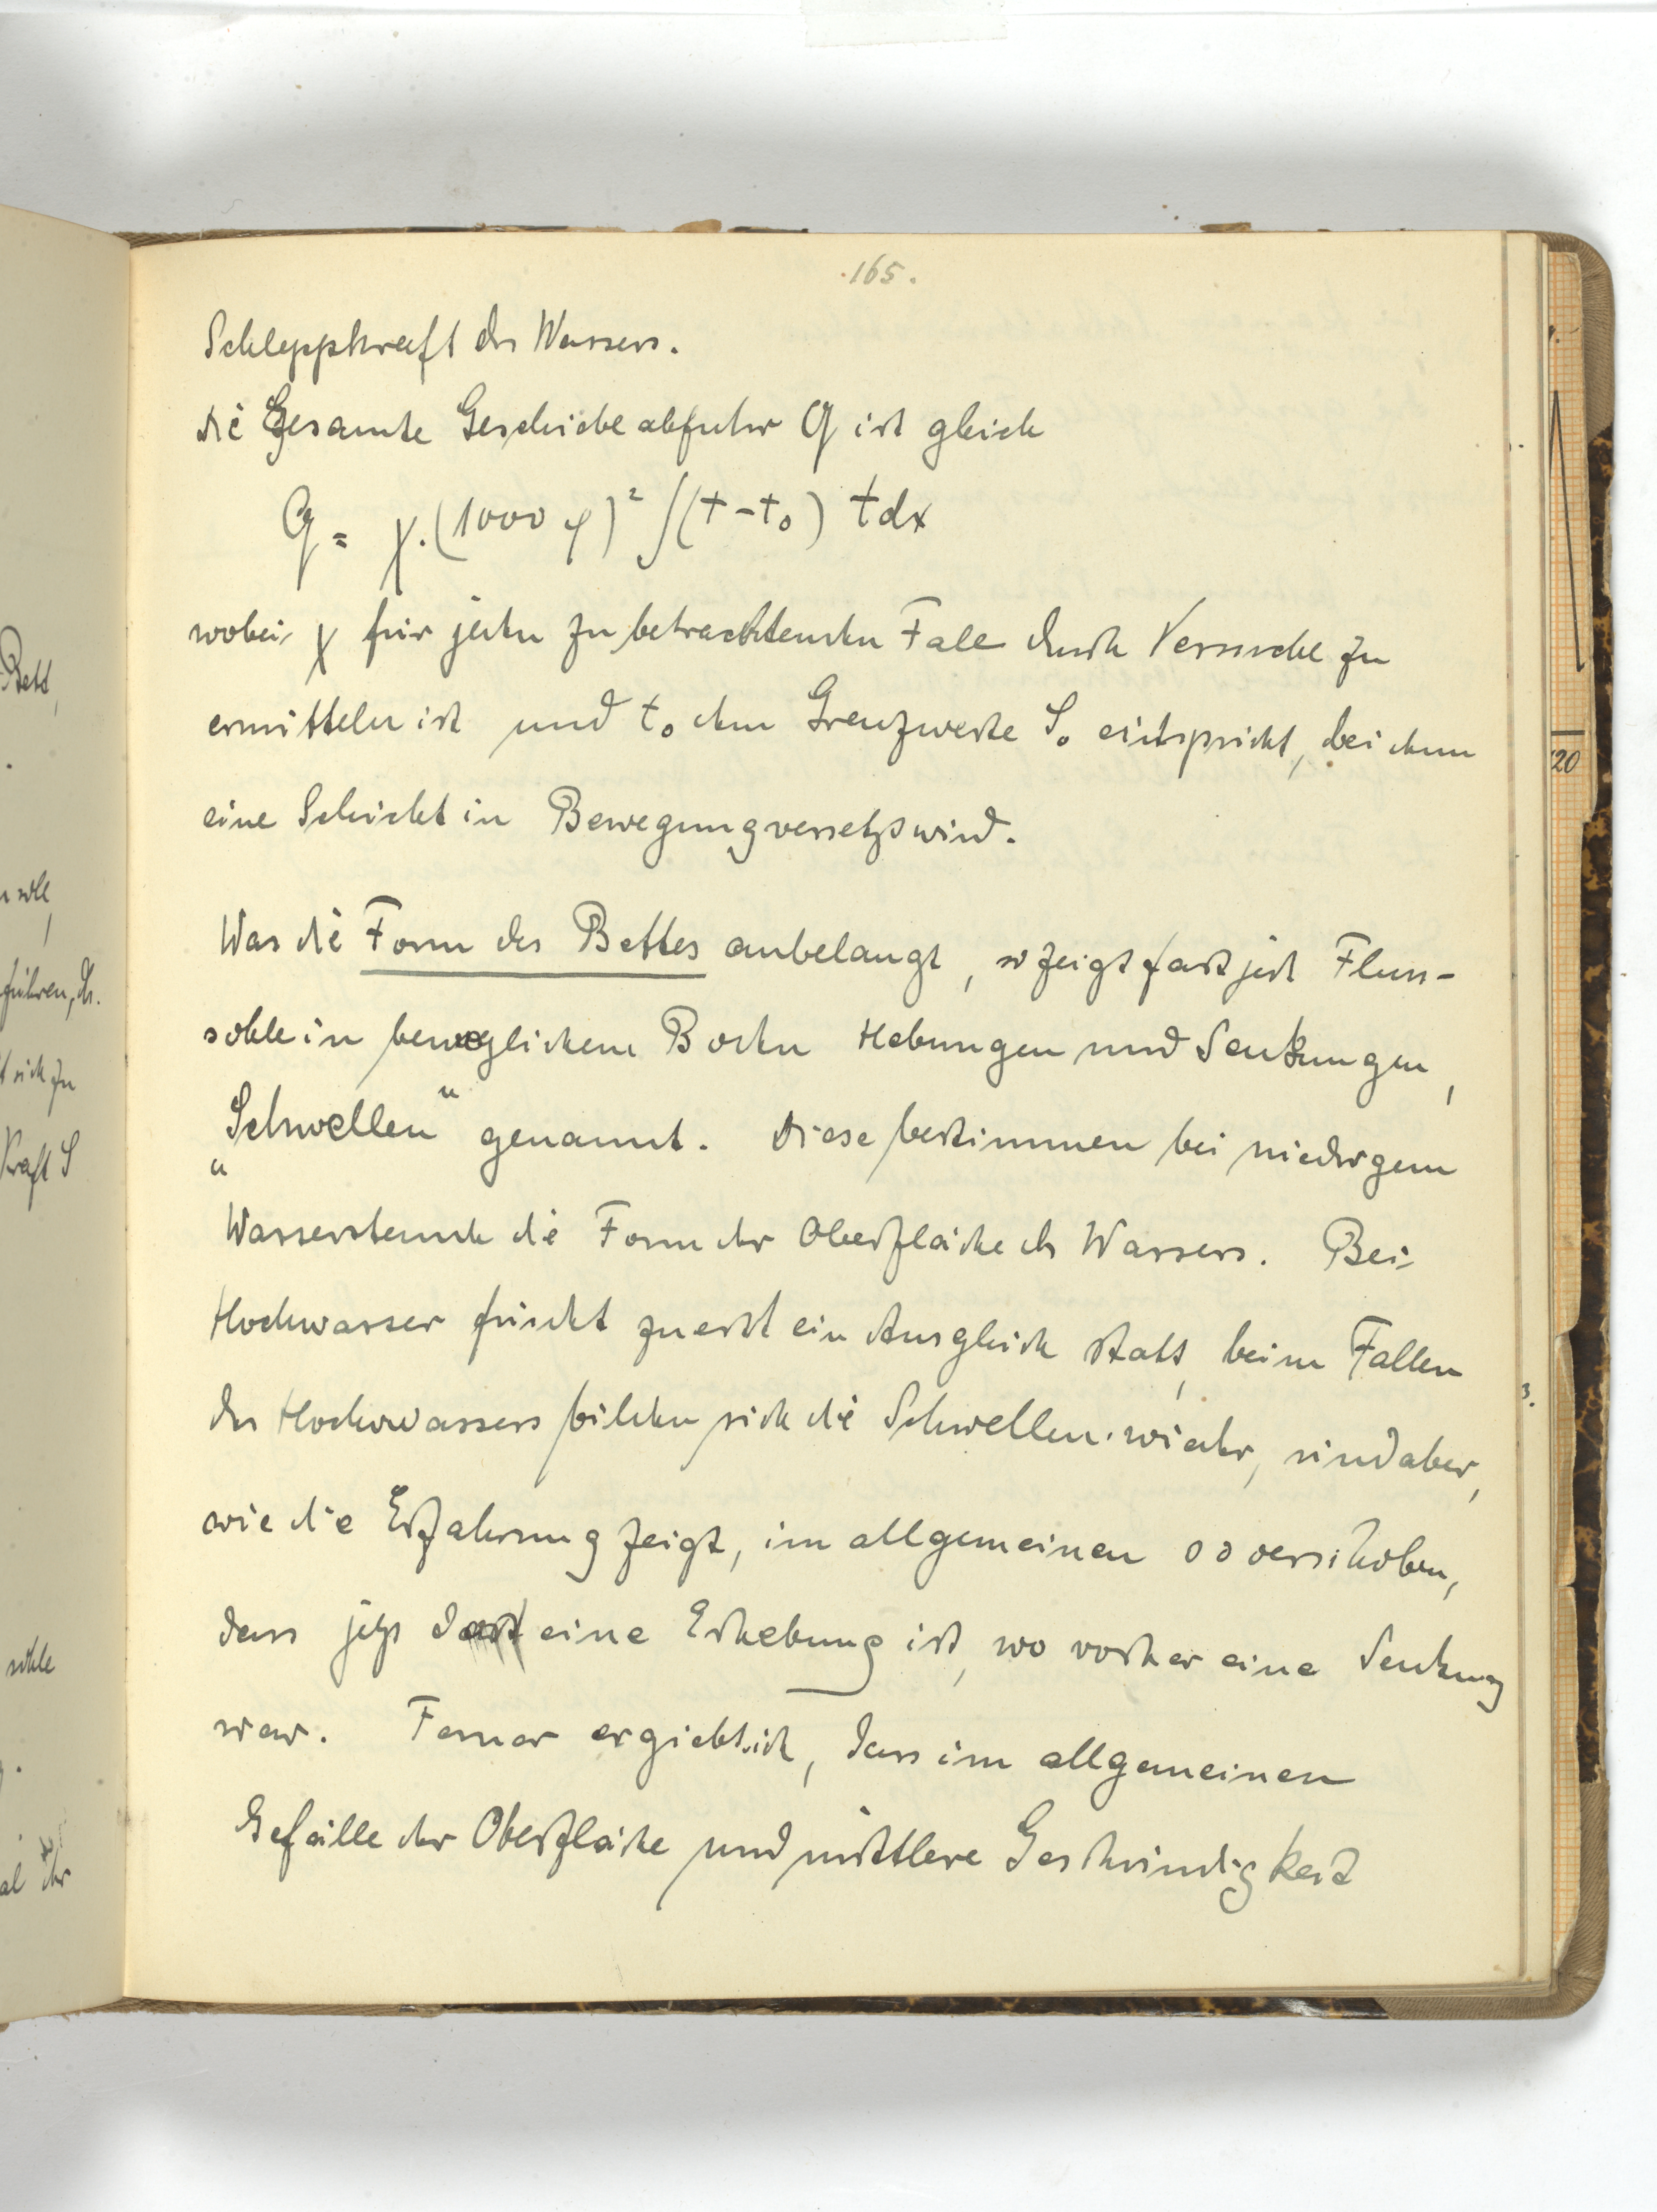 165.
Schleppkraft des Wassers.
die Gesamte Geschiebeabfuhr G ist gleich
G = χ.(1000 φ)² ∫(t-t₀) t dx
wobei χ für jeden zu betrachtenden Fall durch Versuche zu
ermitteln ist und t₀ dem Grenzwerte S₀ entspricht, bei dem
eine Schicht in Bewegung versetzt wird.
Was die Form des Bettes anbelangt, so zeigt fast jede Fluss-
sohle in beweglichem Boden Hebungen und Senkungen,
„Schwellen“ genannt. Diese bestimmen bei niedrigem
Wasserstande die Form der Oberfläche des Wassers. Bei
Hochwasser findet zuerst ein Ausgleich statt, beim Fallen
des Hochwassers bilden sich die Schwellen wieder, sind aber,
wie die Erfahrung zeigt, im allgemeinen so verschoben,
dass jetzt dort eine Erhebung ist, wo vorher eine Senkung
war. Ferner ergiebt sich, dass im allgemeinen
Gefälle der Oberfläche und mittlere Geschwindigkeit
Bett,
soll,
führen, d.
sich zu
Kraft S
sohle
120
3.